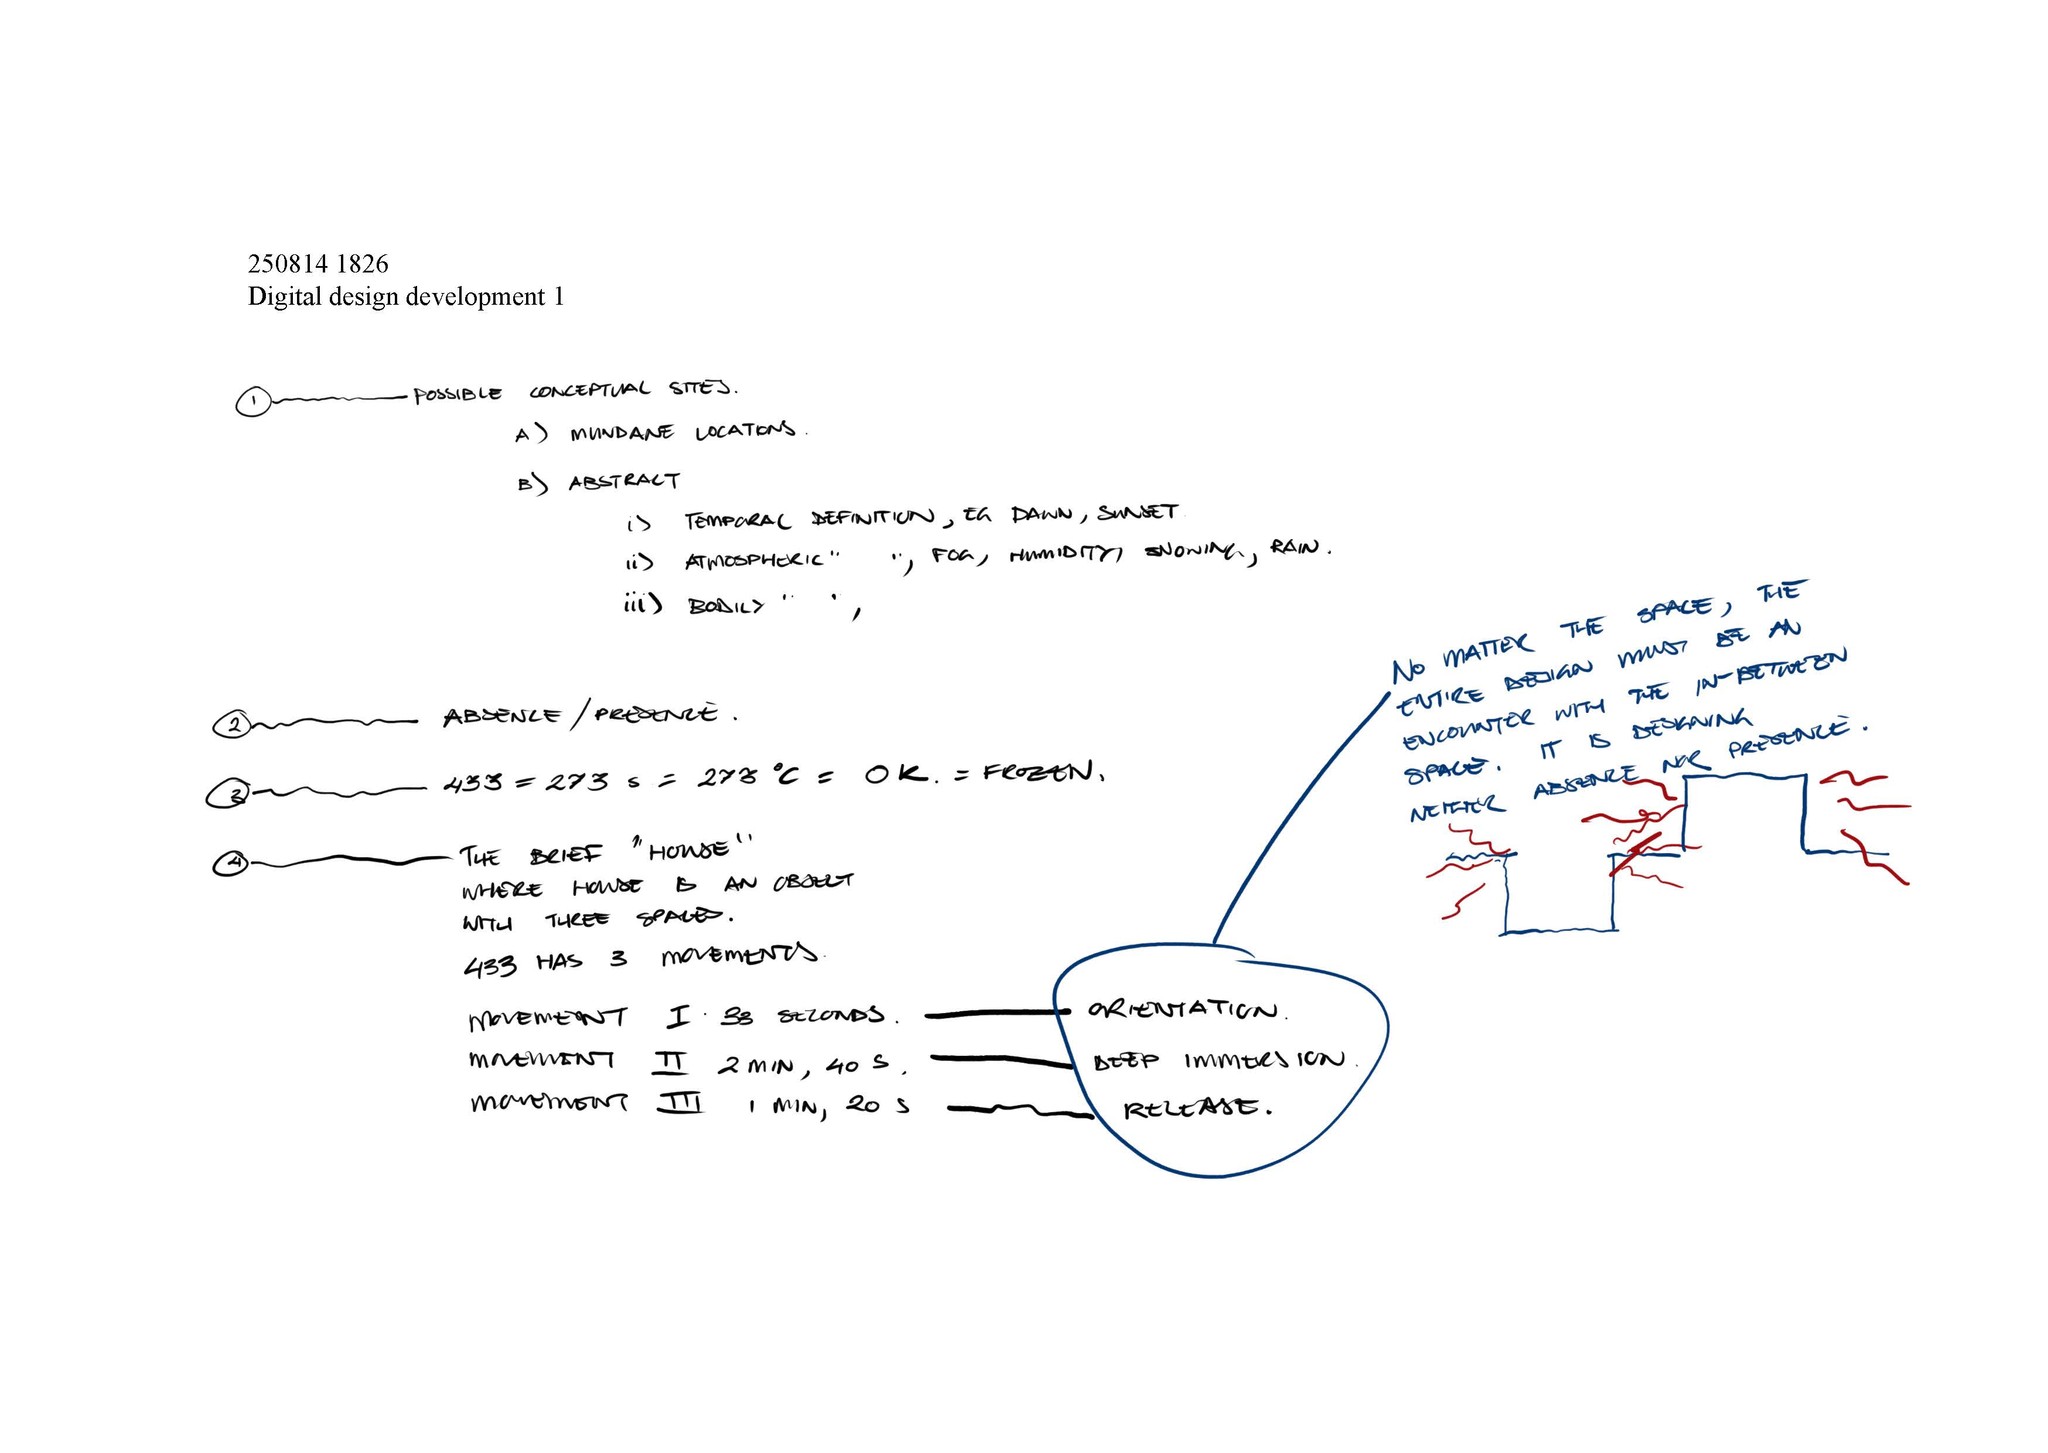 250814 1826
Digital design development 1
1 POSSIBLE CONCEPTUAL SITES.
A) MUNDANE LOCATIONS.
B) ABSTRACT
i) TEMPORAL DEFINITION, EG DAWN, SUNSET
ii) ATMOSPHERIC " ", FOG, HUMIDITY, SNOWING, RAIN.
iii) BODILY " ",
2 ABSENCE / PRESENCE.
3 433 = 273 s = 273 °C = 0 K. = FROZEN.
4 THE BRIEF "HOUSE"
WHERE HOUSE IS AN OBJECT
WITH THREE SPACES.
433 HAS 3 MOVEMENTS.
MOVEMENT I. 33 SECONDS. ORIENTATION.
MOVEMENT II 2 MIN, 40 S. DEEP IMMERSION.
MOVEMENT III 1 MIN, 20 S RELEASE.
NO MATTER THE SPACE, THE
ENTIRE DESIGN MUST BE AN
ENCOUNTER WITH THE IN-BETWEEN
SPACE. IT IS DESIGNING
NEITHER ABSENCE NOR PRESENCE.